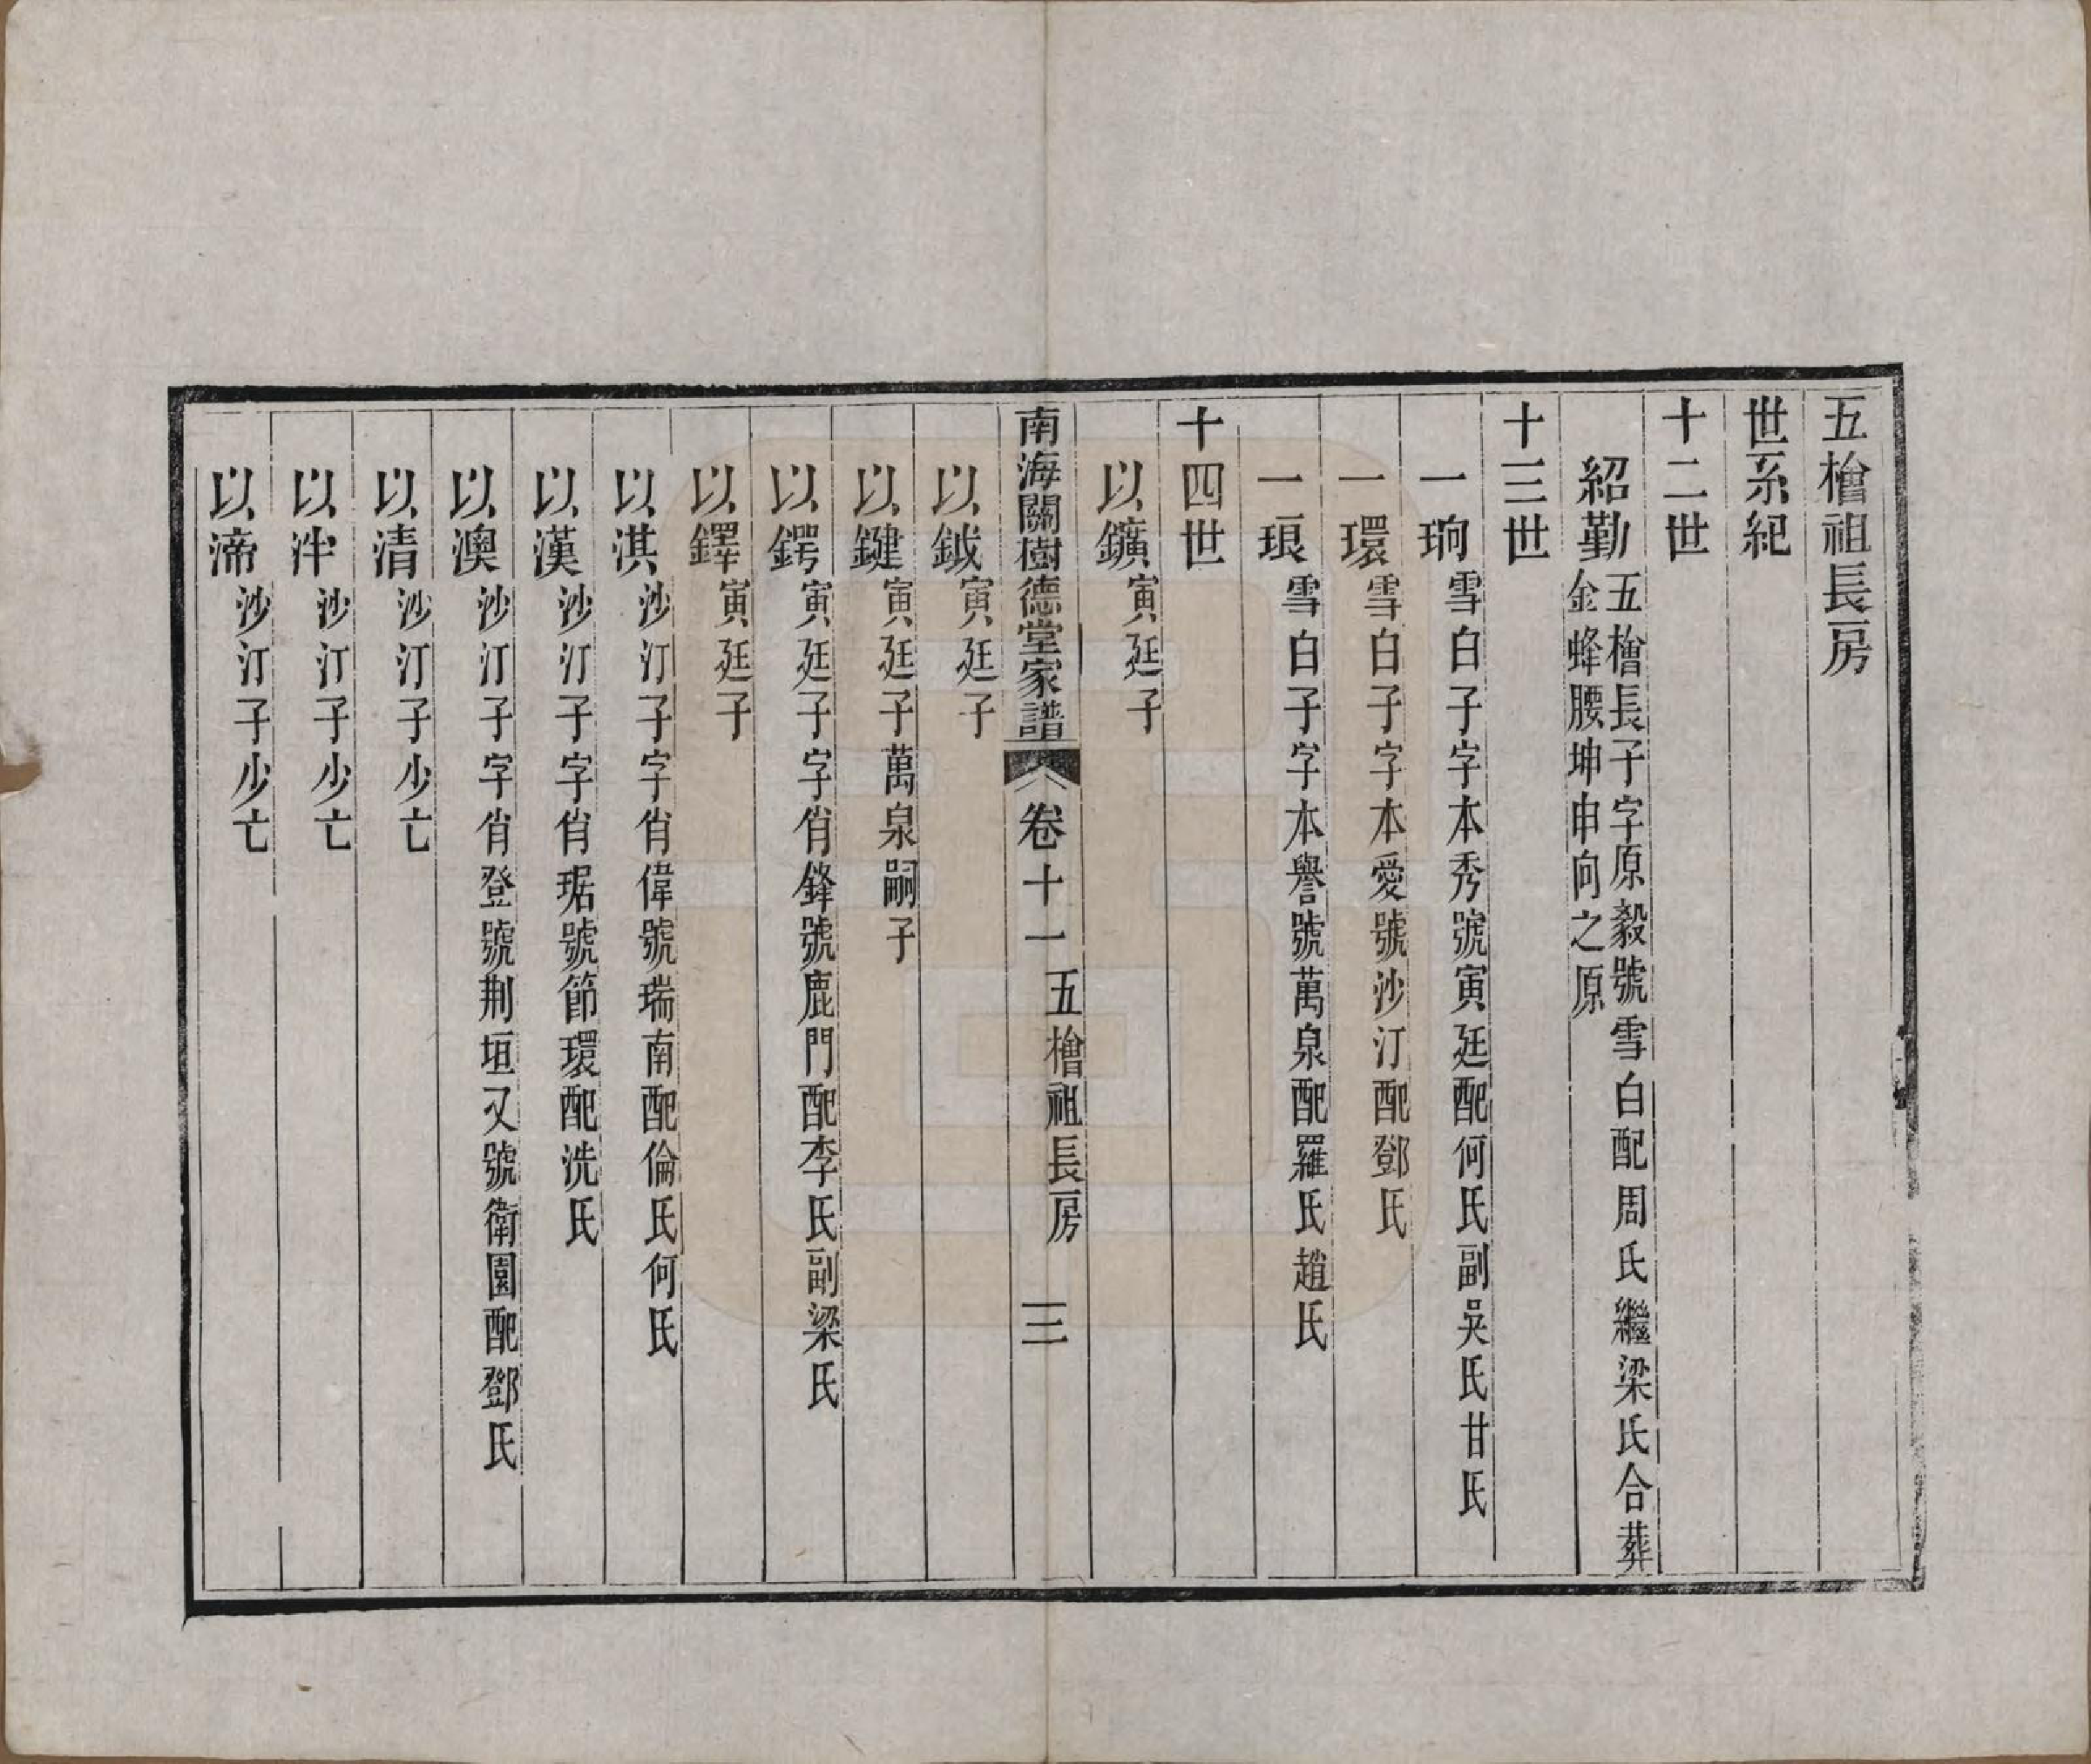 五檜祖長房
世系紀
十二世
紹勤五檜長子字原毅號雪白配周氏繼梁氏合葬
金蜂腰坤申向之原
十三世
一珦雪白子字本秀號寅廷配何氏副吳氏甘氏
一環雪白子字本愛號沙汀配鄧氏
一琅雪白子字本譽號萬泉配羅氏趙氏
十四世
以鑛寅廷子
南海關樹德堂家譜 卷十一 五檜祖長房 三
以鉞寅廷子
以鍵寅廷子萬泉嗣子
以鍔寅廷子字肖鋒號鹿門配李氏副梁氏
以鐸寅廷子
以淇沙汀子字肖偉號瑞南配倫氏何氏
以漢沙汀子字肖琚號節環配冼氏
以澳沙汀子字肖登號荆垣又號衛園配鄧氏
以清沙汀子少亡
以泮沙汀子少亡
以渧沙汀子少亡